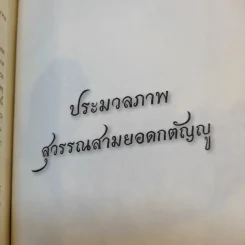 ประมวลภาพ
สุวรรณสามยอดกตัญญู